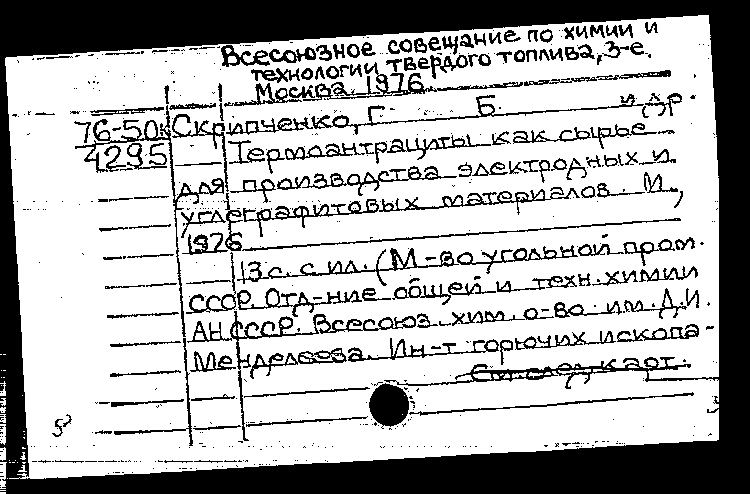 Всесоюзное совещание по химии и
технологии твердого топлива, 3-е.
Москва. 1976
76-50к Скрипченко, Г. Б. и др.
4295 Термоантрациты как сырье
для производства электродных и
углеграфитовых материалов. М.,
1976
13с. с ил. (М-во угольной пром.
СССР. Отд-ние общей и техн. химии
АН СССР. Всесоюз. хим. о-во им. Д.И.
Менделеева. Ин-т горючих ископа-
См. след. карт.